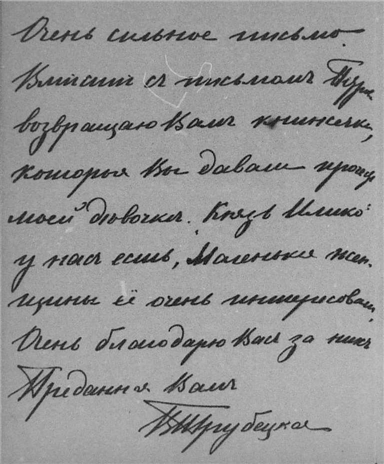 Очень сильное письмо.
Вместѣ съ письмомъ
возвращаю Вамъ книжечки,
которыя Вы давали
моей дѣвочкѣ. Князь Илико
у насъ есть, Маленькія жен-
щины её очень интересовали
Очень благодарю Васъ за нихъ
Преданная Вамъ
ВТрубецкая